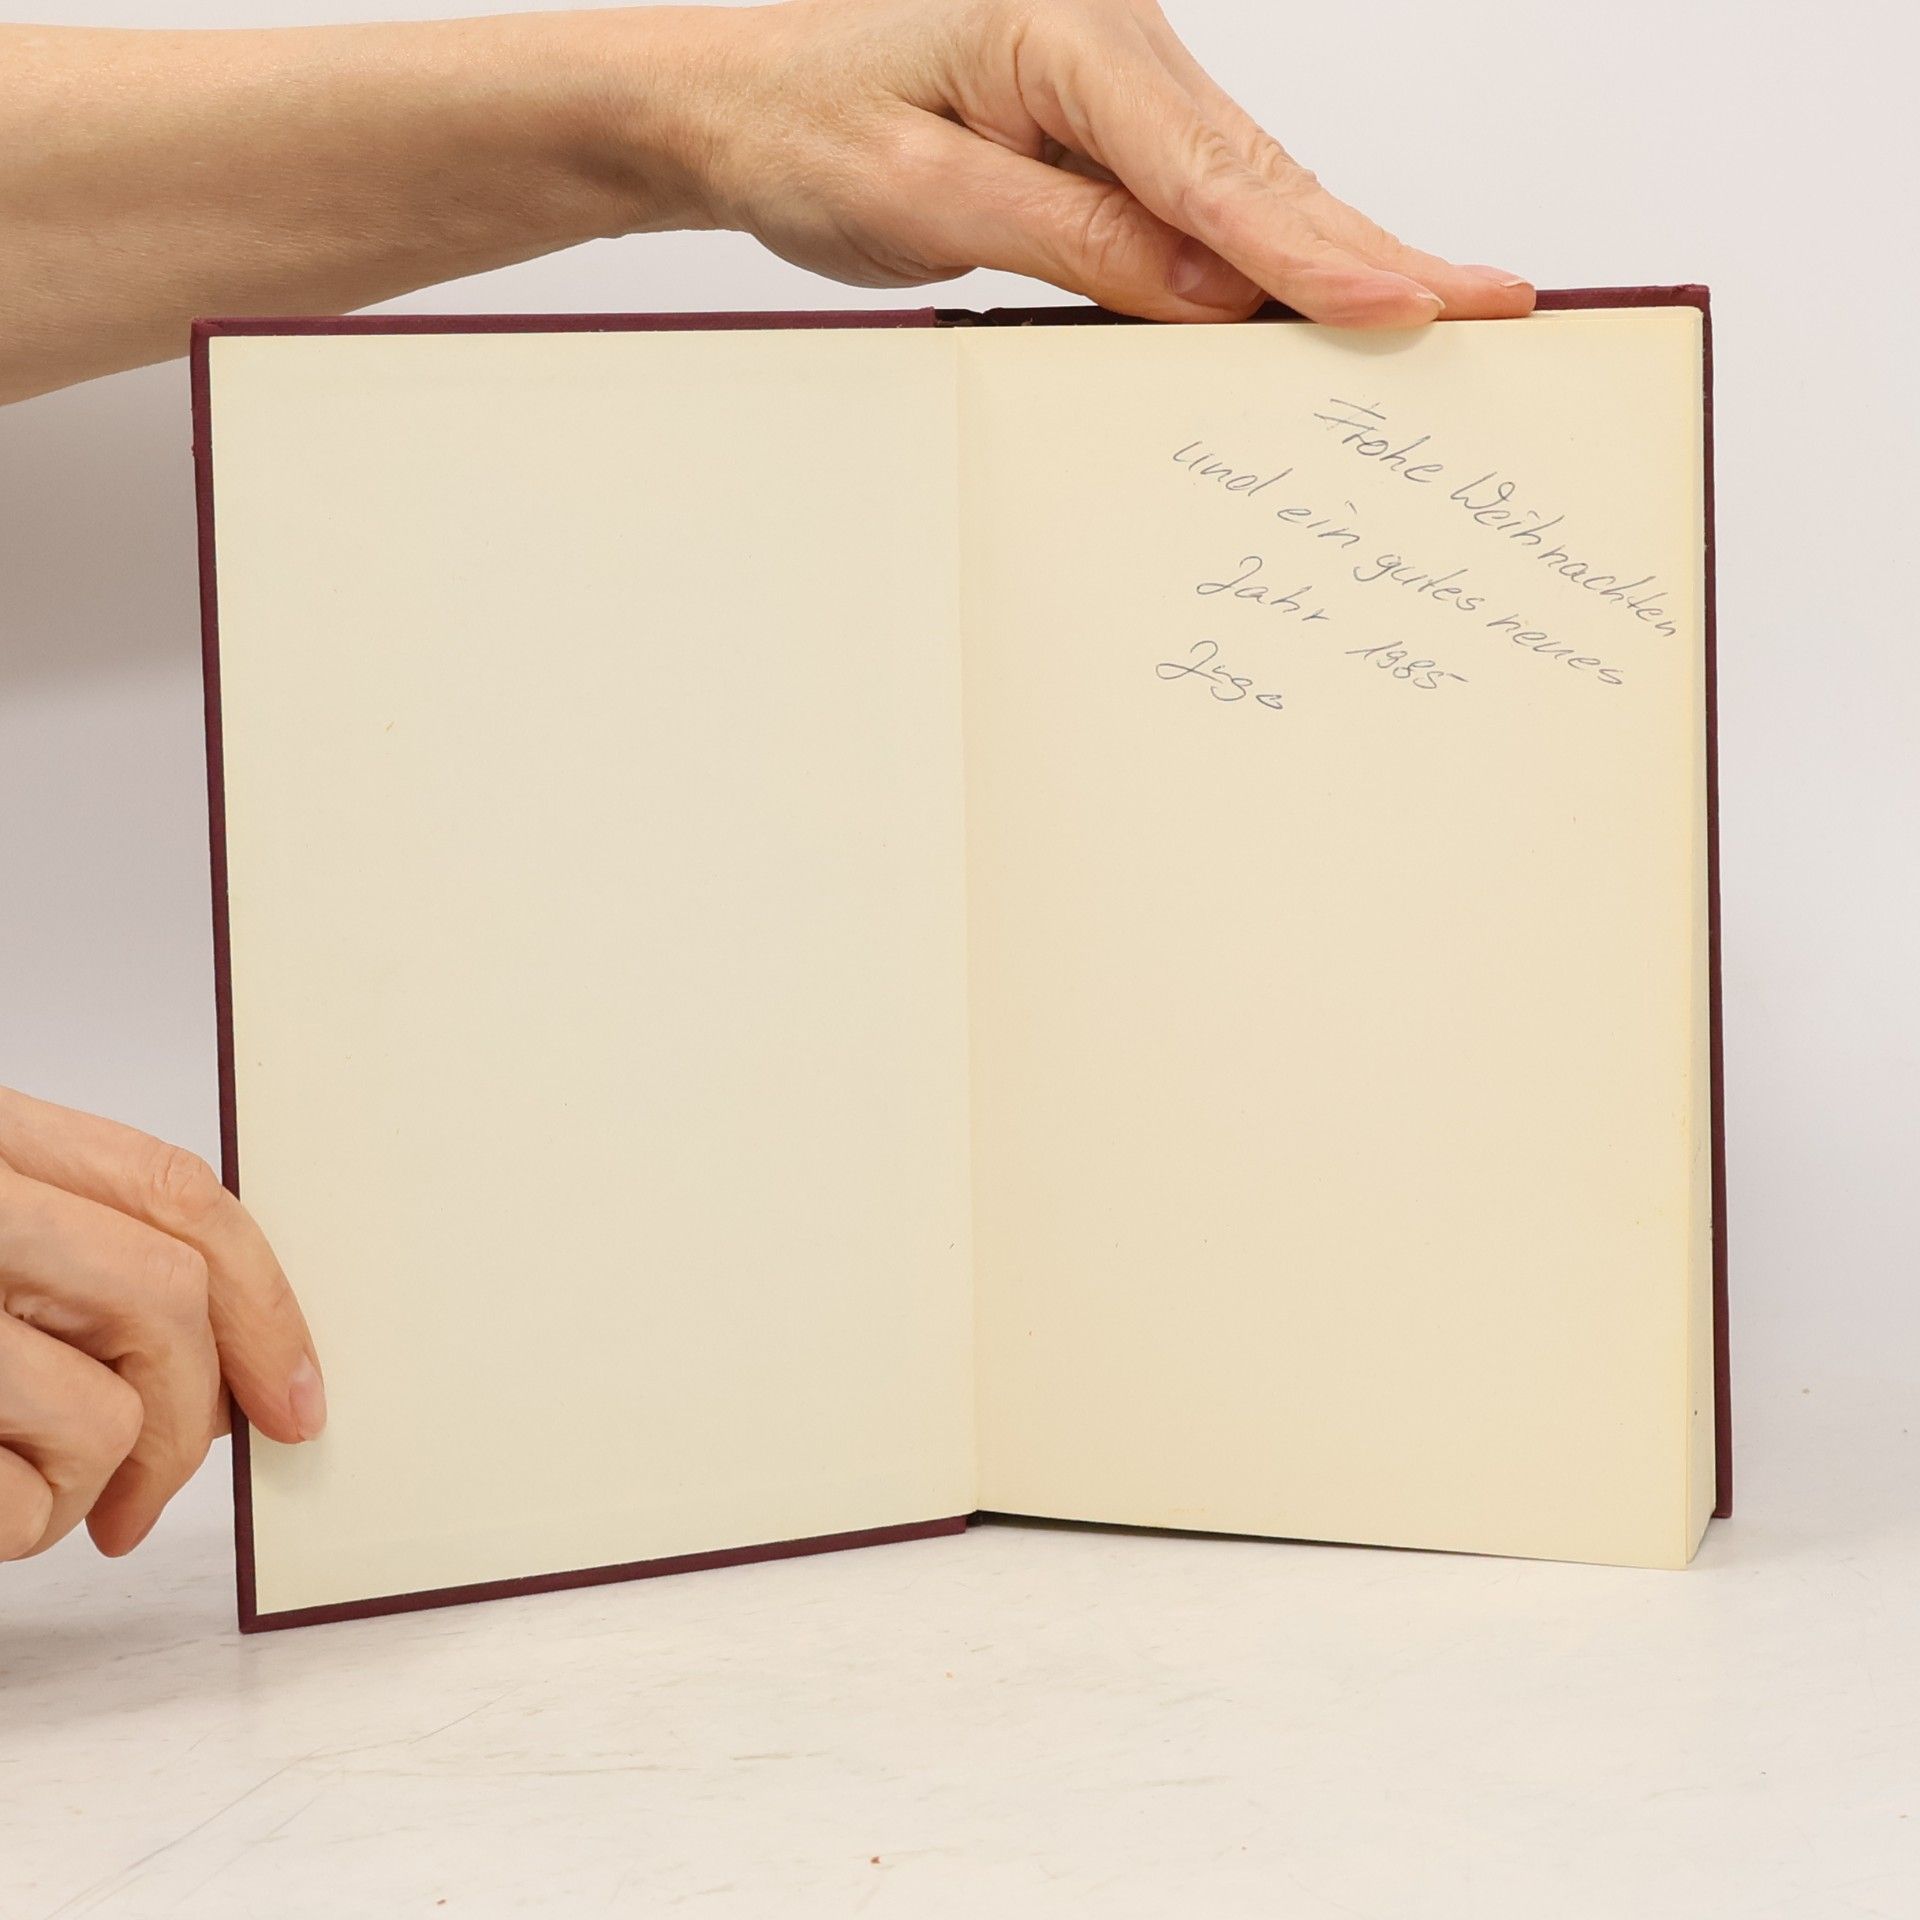 Frohe Weihnachten
und ein gutes neues
Jahr 1985